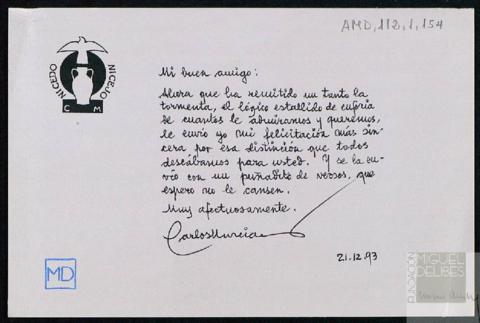 AMD, 112, 1, 154
NICEDO
NICEJO
C M
Mi buen amigo:
Ahora que ha remitido un tanto la
tormenta, el lógico estallido de euforia
de cuantos le admiramos y queremos,
le envío yo mi felicitación más sin-
cera por esa distinción que todos
deseábamos para usted. Y se la en-
vío con un puñadito de versos, que
espero no le cansen.
Muy afectuosamente.
Carlos Murciano
21.12.93
MD
FUNDACIÓN
MIGUEL
DELIBES